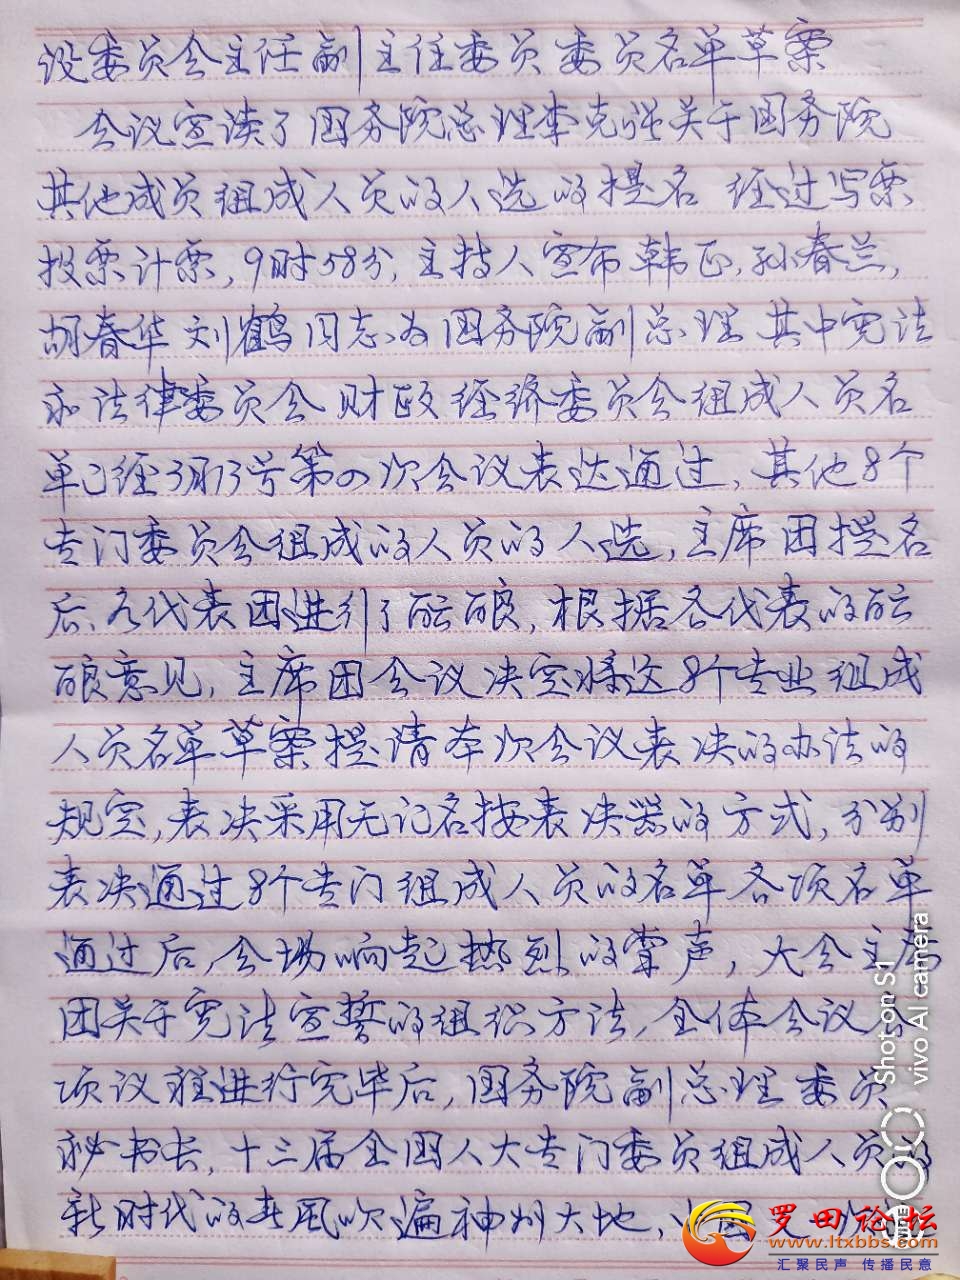 设委员会主任副主任委员委员名单草案
会议宣读了国务院总理李克强关于国务院
其他成员组成人员的人选的提名 经过写票
投票计票,9时58分,主持人宣布韩正,孙春兰,
胡春华 刘鹤同志为国务院副总理 其中宪法
和法律委员会 财政经济委员会组成人员名
单已经3月13号第四次会议表达通过,其他8个
专门委员会组成的人员的人选,主席团提名
后、各代表团进行了酝酿,根据各代表的酝
酿意见,主席团会议决定将这8个专业组成
人员名单草案提请本次会议表决的办法的
规定,表决采用无记名按表决器的方式,分别
表决通过8个专门组成人员的名单各项名单
通过后,会场响起热烈的掌声,大会主席
团关于宪法宣誓的组织方法,全体会议各
项议程进行完毕后,国务院副总理委员
秘书长,十三届全国人大专门委员组成人员的
新时代的春风吹遍神州大地、
Shot on S1
vivo AI camera
罗田论坛
www.ltxbbs.com
汇聚民声 传播民意